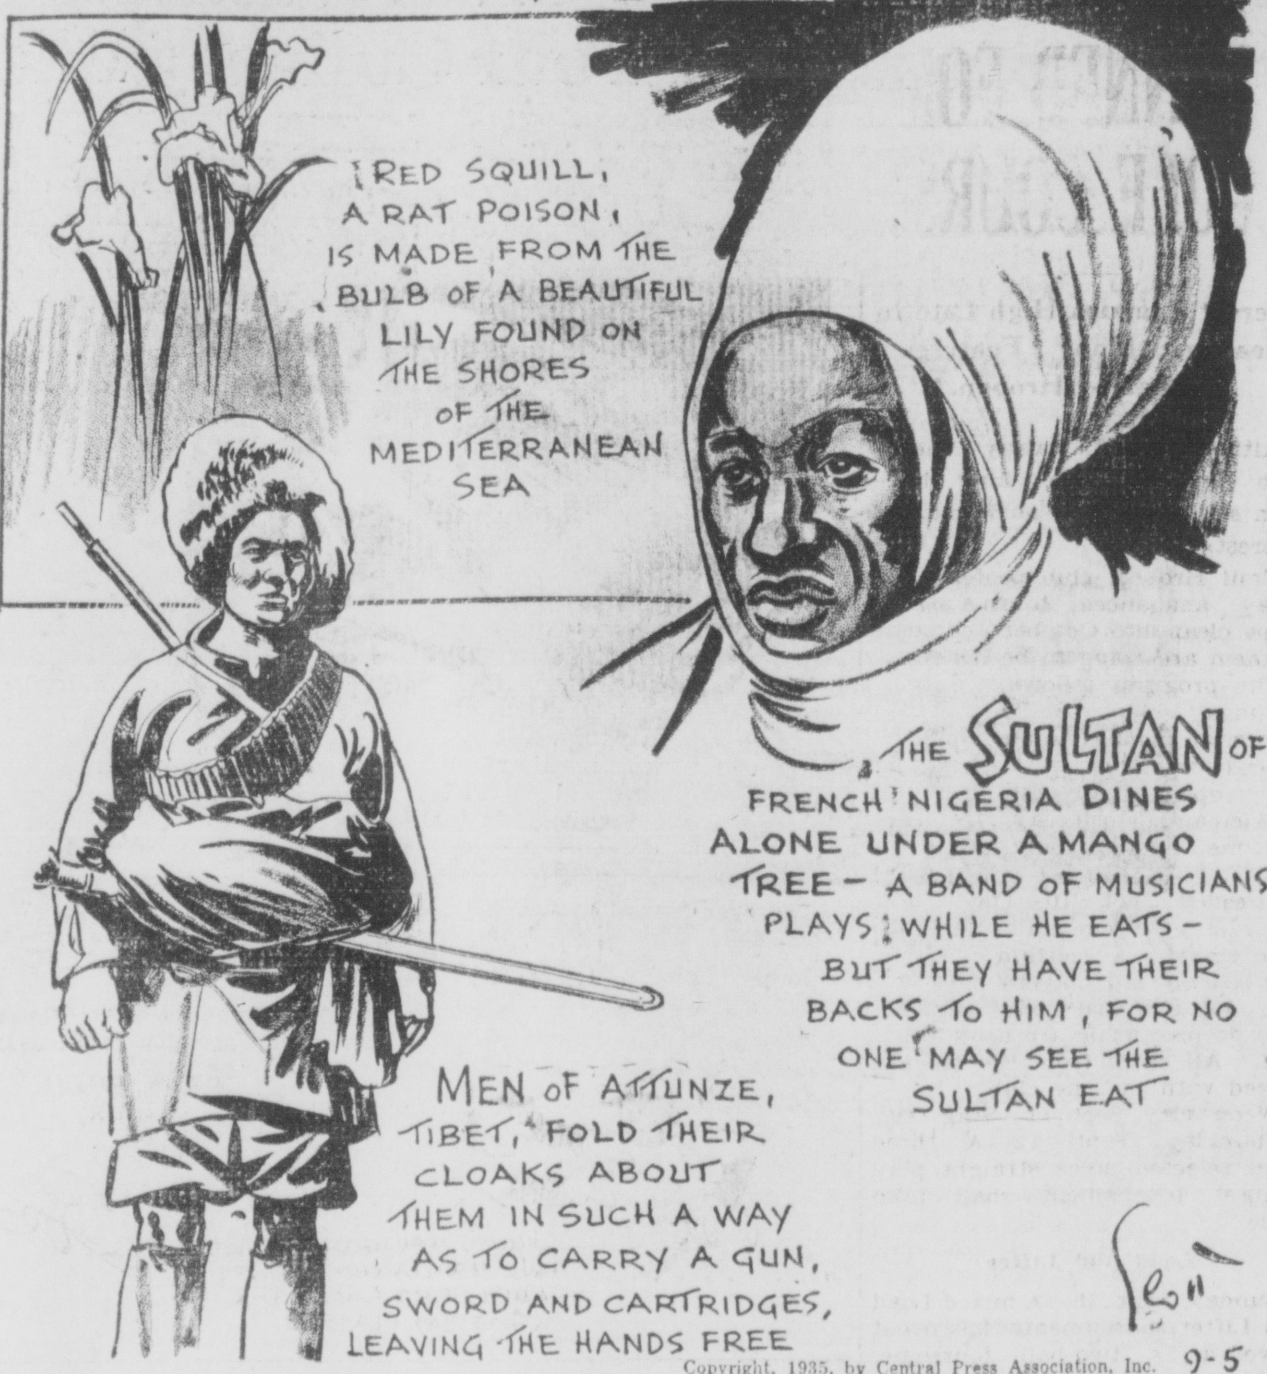 RED SQUILL,
A RAT POISON,
IS MADE FROM THE
BULB OF A BEAUTIFUL
LILY FOUND ON
THE SHORES
OF THE
MEDITERRANEAN
SEA
THE SULTAN OF
FRENCH NIGERIA DINES
ALONE UNDER A MANGO
TREE - A BAND OF MUSICIANS
PLAYS WHILE HE EATS -
BUT THEY HAVE THEIR
BACKS TO HIM, FOR NO
ONE MAY SEE THE
SULTAN EAT
MEN OF ATTUNZE,
TIBET, FOLD THEIR
CLOAKS ABOUT
THEM IN SUCH A WAY
AS TO CARRY A GUN,
SWORD AND CARTRIDGES,
LEAVING THE HANDS FREE
Scott
Copyright, 1935, by Central Press Association, Inc. 9-5